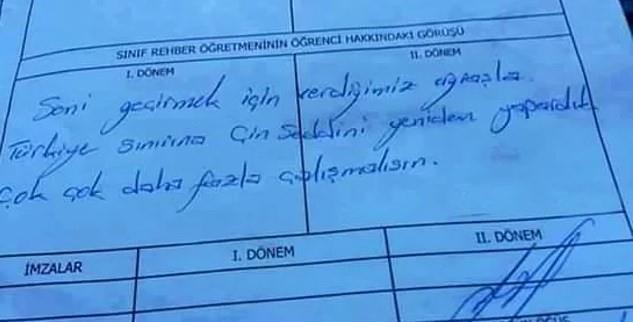 SINIF REHBER ÖĞRETMENİNİN ÖĞRENCİ HAKKINDAKİ GÖRÜŞÜ
I. DÖNEM
II. DÖNEM
Seni geçirmek için verdiğimiz uğraşla
Türkiye sınırına Çin Seddini yeniden yapardık
Çok çok daha fazla çalışmalısın.
İMZALAR
I. DÖNEM
II. DÖNEM